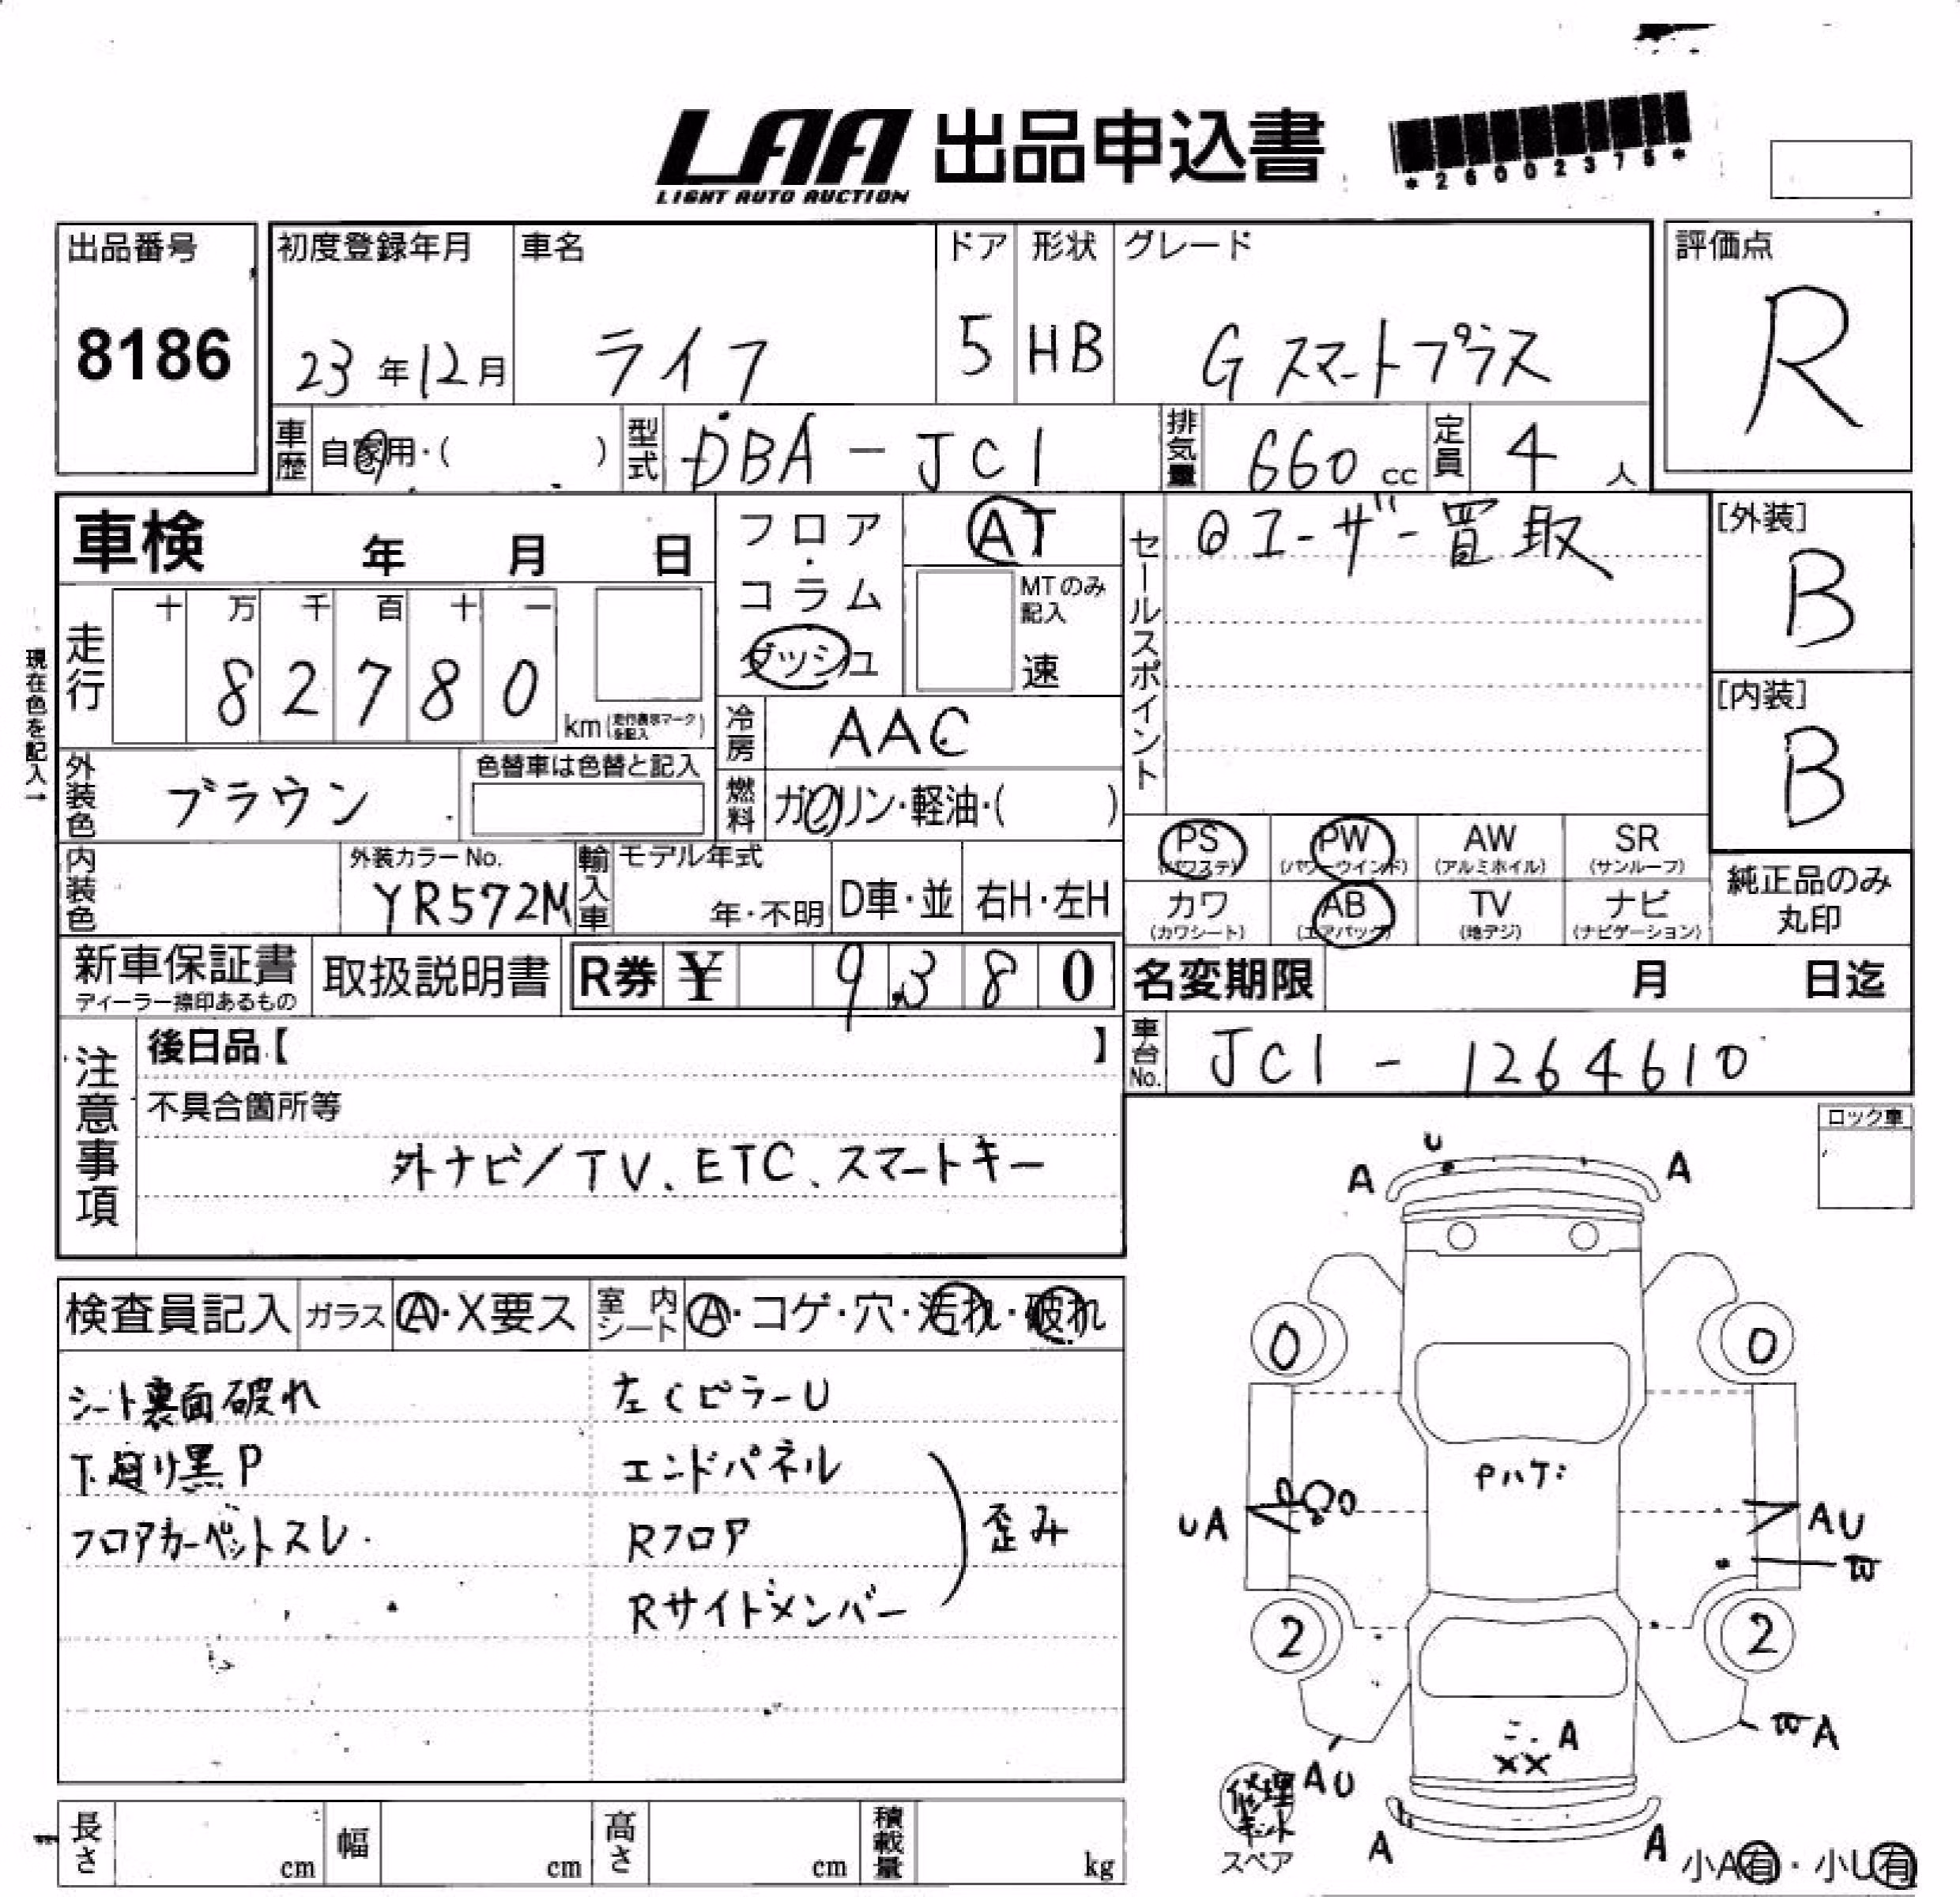 LAA 出品申込書
LIGHT AUTO AUCTION
*26002375*
出品番号
8186
初度登録年月
23年12月
車名
ライフ
ドア
5
形状
HB
グレード
G スマートプラス
評価点
R
車歴
自家用・( )
型式
DBA-JC1
排気量
660 cc
定員
4 人
車検 年 月 日
現在色を記入→
走行
十 万 千 百 十 一
8 2 7 8 0
km (走行表示マークを記入)
フロア・コラム
ダッシュ
AT
MTのみ記入
速
冷房
AAC
燃料
ガソリン・軽油・( )
外装色
ブラウン
色替車は色替と記入
内装色
外装カラーNo.
YR572M
輸入車
モデル年式
年・不明
D車・並
右H・左H
セールスポイント
◎ユーザー買取
[外装]
B
[内装]
B
PS (パワステ)
PW (パワーウインド)
AW (アルミホイル)
SR (サンルーフ)
カワ (カワシート)
AB (エアバッグ)
TV (地デジ)
ナビ (ナビゲーション)
純正品のみ丸印
新車保証書
ディーラー捺印あるもの
取扱説明書
R券 ¥ 9,380
名変期限 月 日迄
車台No.
JC1-1264610
注意事項
後日品【 】
不具合箇所等
外ナビ/TV、ETC、スマートキー
ロック車
検査員記入
ガラス A・X要ス
室内シート A・コゲ・穴・汚れ・破れ
シート裏面破れ
下廻り黒P
フロアカーペットスレ
左Cピラー U
エンドパネル
Rフロア
Rサイドメンバー
歪み
U
A A
0 0
Pハゲ
UA
AU
W
2 2
A
XX
WA
AU
修理キット
スペア
A A
小A有・小U有
長さ cm
幅 cm
高さ cm
積載量 kg